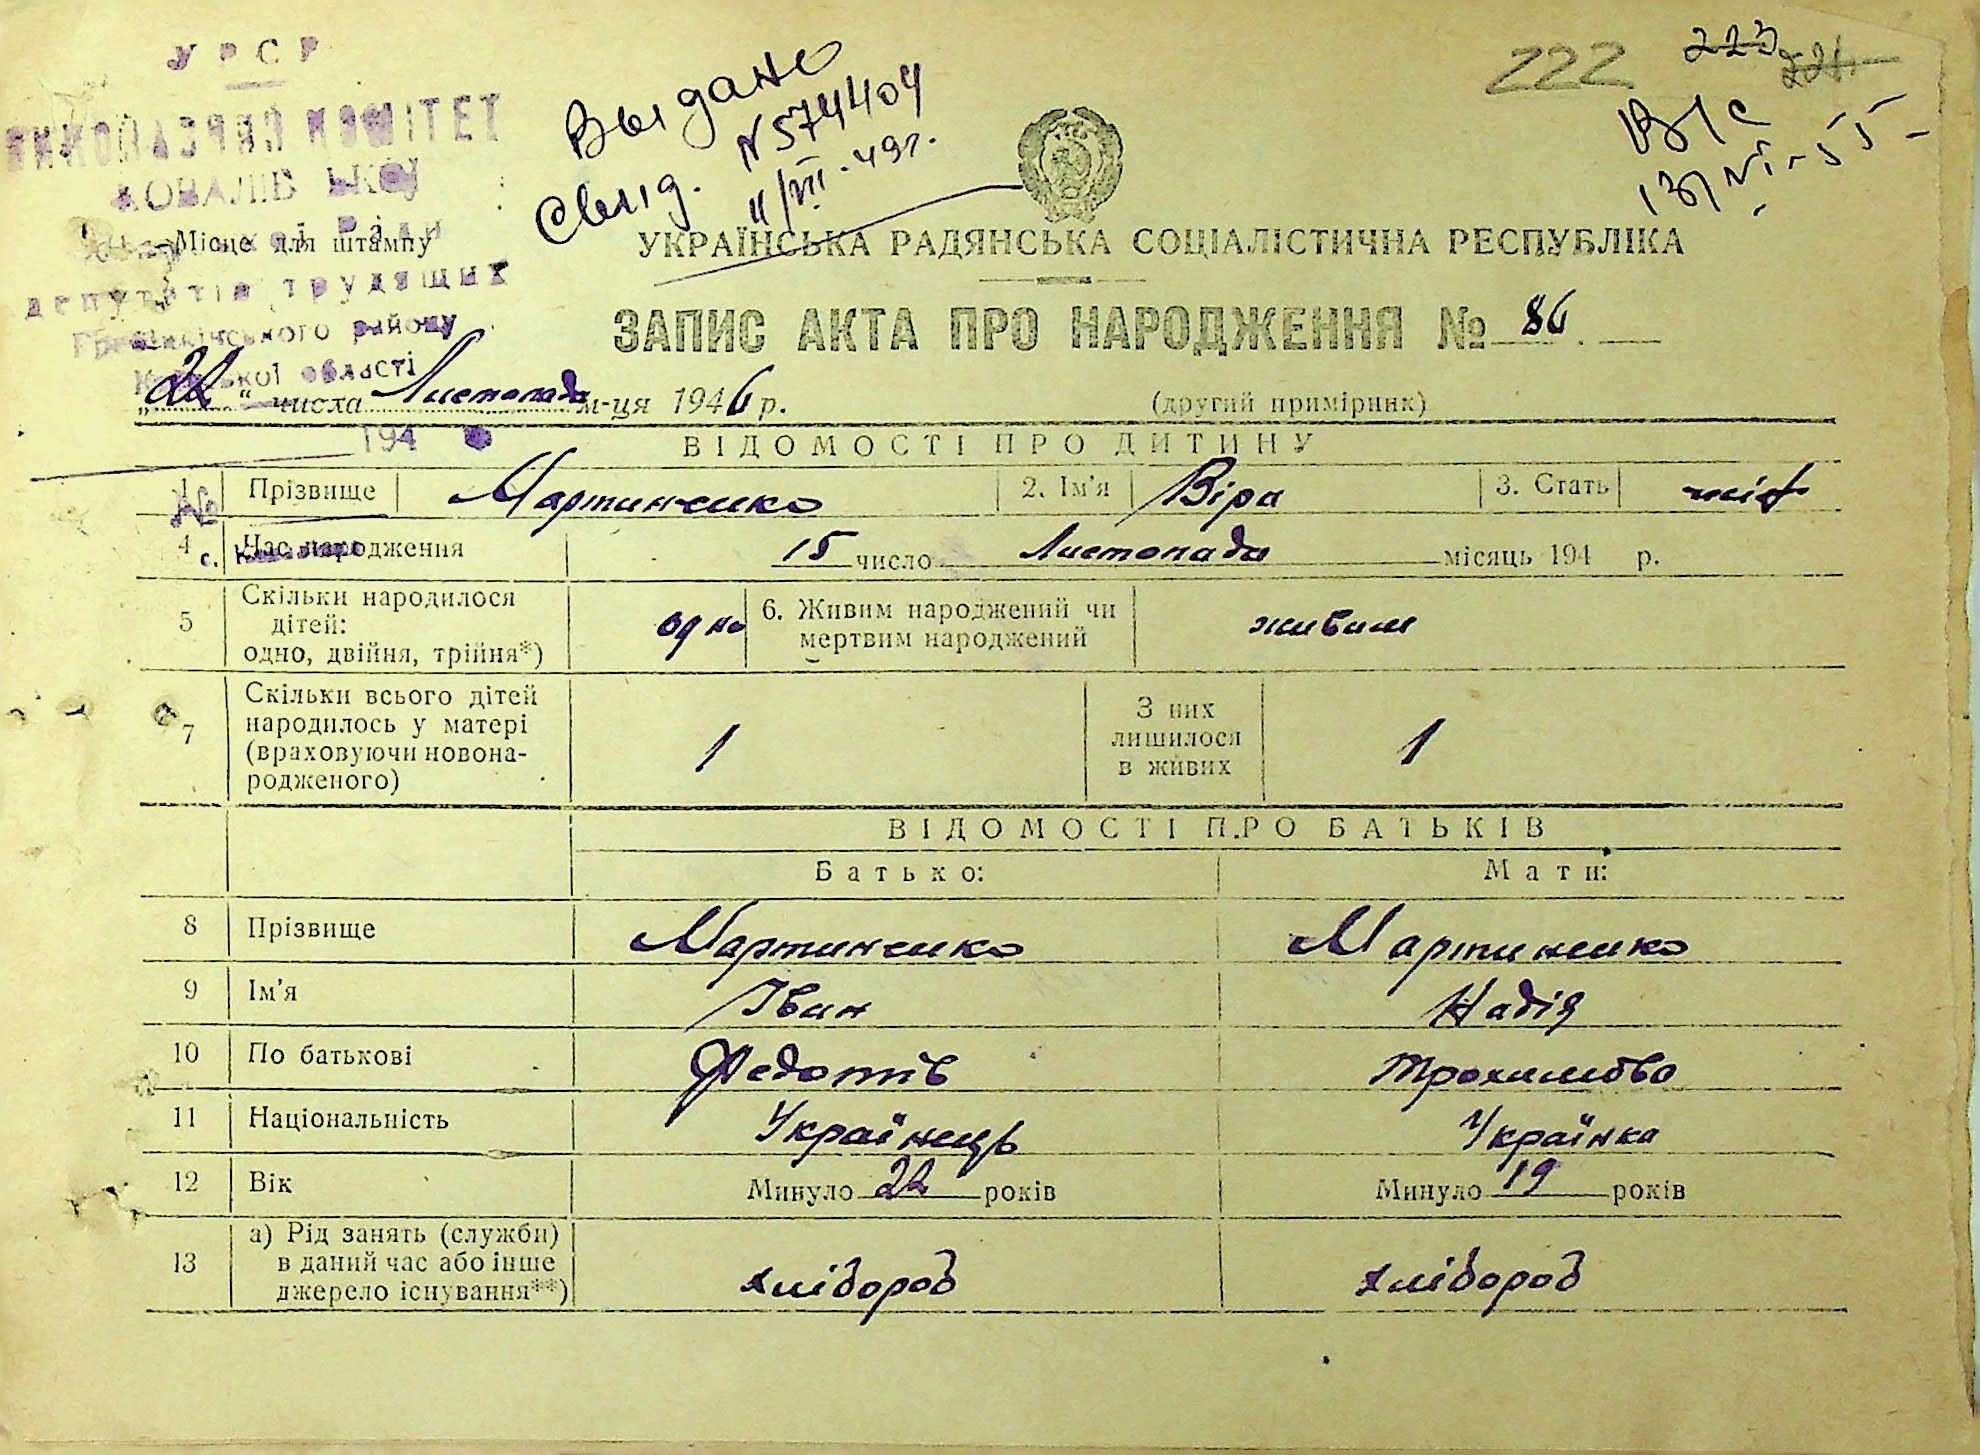 У Р С Р
КОМІТЕТ
КОВАЛІВ ЬКОЇ
Місце для штампу
депутатів трудящих
району
області
194
Выдано
Свид. N 574404
11/VII - 49г.
222
223
В/с
13/VI - 55 -
УКРАЇНСЬКА РАДЯНСЬКА СОЦІАЛІСТИЧНА РЕСПУБЛІКА
ЗАПИС АКТА ПРО НАРОДЖЕННЯ № 86
„22“ числа Листопада м-ця 1946 р.
(другий примірник)
ВІДОМОСТІ ПРО ДИТИНУ
1 Прізвище Мартиненко 2. Ім'я Віра 3. Стать жін
№
4 Час народження 15 число Листопада місяць 194 р.
с.
5 Скільки народилося дітей:
одно, двійня, трійня*) одно
6. Живим народжений чи
мертвим народжений живим
7 Скільки всього дітей
народилось у матері
(враховуючи новона-
родженого) 1
З них
лишилося
в живих 1
ВІДОМОСТІ ПРО БАТЬКІВ
Батько: Мати:
8 Прізвище Мартиненко Мартиненко
9 Ім'я Іван Надія
10 По батькові Федотів Трохимовна
11 Національність Українець Українка
12 Вік Минуло 22 років Минуло 19 років
13 а) Рід занять (служби)
в даний час або інше
джерело існування**) хлібороб хлібороб